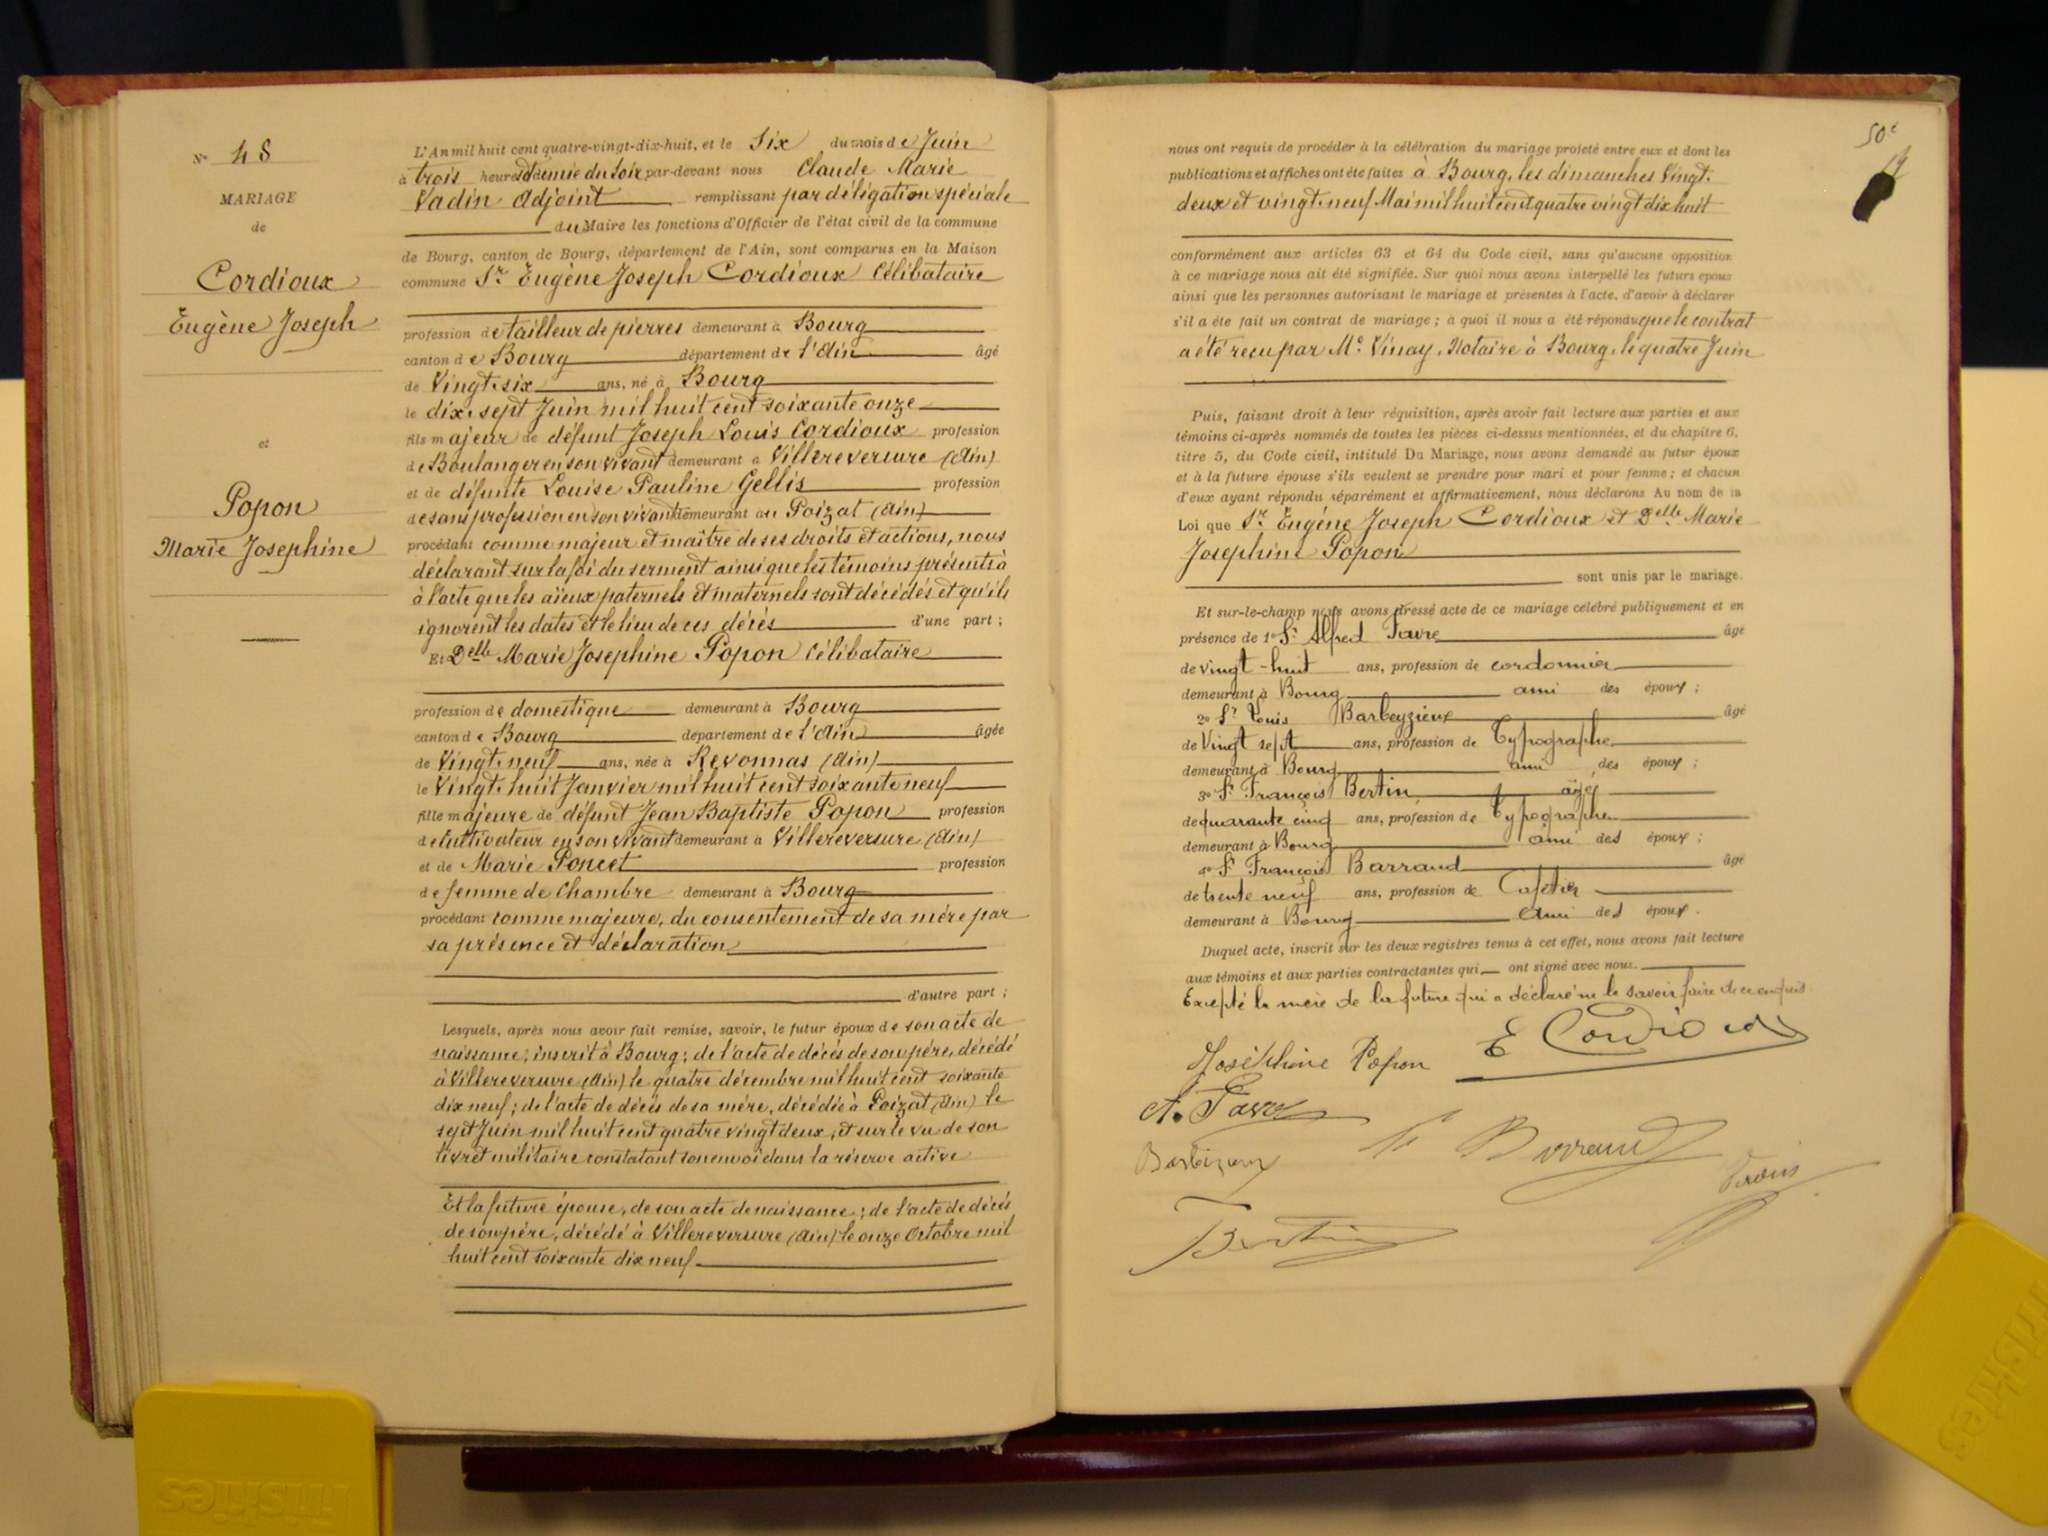 N° 48
MARIAGE
de
Cordioux
Eugène Joseph
et
Popon
Marie Josephine
L'An mil huit cent quatre-vingt-dix-huit, et le Six du mois de Juin
à trois heures et demie du Soir par-devant nous Claude Marie
Vadin Adjoint remplissant par délégation spéciale
du Maire les fonctions d'Officier de l'état civil de la commune
de Bourg, canton de Bourg, département de l'Ain, sont comparus en la Maison
commune Sr Eugène Joseph Cordioux Célibataire
profession de tailleur de pierres demeurant à Bourg
canton de Bourg département de l'Ain âgé
de Vingt-six ans, né à Bourg
le dix-sept Juin mil huit cent soixante onze
fils majeur de défunt Joseph Louis Cordioux profession
de Boulanger en son vivant demeurant à Villereversure (Ain)
et de défunte Louise Pauline Gellis profession
de sans profession en son vivant demeurant au Poizat (Ain)
procédant comme majeur et maître de ses droits et actions, nous
déclarant sur la foi du serment ainsi que les témoins présents à
à l'acte que les aïeux paternels et maternels sont décédés et qu'ils
ignorent les dates et le lieu de ces décès d'une part ;
Et Delle Marie Josephine Popon Célibataire
profession de domestique demeurant à Bourg
canton de Bourg département de l'Ain âgée
de Vingt-neuf ans, née à Revonnas (Ain)
le Vingt-huit Janvier mil huit cent soixante neuf
fille majeure de défunt Jean Baptiste Popon profession
de Cultivateur en son vivant demeurant à Villereversure (Ain)
et de Marie Poncet profession
de femme de Chambre demeurant à Bourg
procédant comme majeure, du consentement de sa mère par
sa présence et déclaration
d'autre part ;
Lesquels, après nous avoir fait remise, savoir, le futur époux de son acte de
naissance ; inscrit à Bourg ; de l'acte de décès de son père, décédé
à Villereversure (Ain) le quatre décembre mil huit cent soixante
dix neuf ; de l'acte de décès de sa mère, décédée à Poizat (Ain) le
sept Juin mil huit cent quatre vingt deux, et sur le vu de son
livret militaire constatant son envoi dans la réserve active
Et la future épouse, de son acte de naissance ; de l'acte de décès
de son père, décédé à Villereversure (Ain) le onze Octobre mil
huit cent soixante dix neuf
50e
nous ont requis de procéder à la célébration du mariage projeté entre eux et dont les
publications et affiches ont été faites à Bourg, les dimanches Vingt-
deux et vingt-neuf Mai mil huit cent quatre vingt dix huit
conformément aux articles 63 et 64 du Code civil, sans qu'aucune opposition
à ce mariage nous ait été signifiée. Sur quoi nous avons interpellé les futurs époux
ainsi que les personnes autorisant le mariage et présentes à l'acte, d'avoir à déclarer
s'il a été fait un contrat de mariage ; à quoi il nous a été répondu que le contrat
a été reçu par Me Vinay, Notaire à Bourg, le quatre Juin
Puis, faisant droit à leur réquisition, après avoir fait lecture aux parties et aux
témoins ci-après nommés de toutes les pièces ci-dessus mentionnées, et du chapitre 6,
titre 5, du Code civil, intitulé Du Mariage, nous avons demandé au futur époux
et à la future épouse s'ils veulent se prendre pour mari et pour femme ; et chacun
d'eux ayant répondu séparément et affirmativement, nous déclarons Au nom de la
Loi que Sr Eugène Joseph Cordioux et Delle Marie
Josephine Popon
sont unis par le mariage.
Et sur-le-champ nous avons dressé acte de ce mariage célébré publiquement et en
présence de 1° Sr Alfred Favre âgé
de vingt-huit ans, profession de cordonnier
demeurant à Bourg ami des époux ;
2° Sr Louis Barbeyzieux âgé
de Vingt sept ans, profession de Typographe
demeurant à Bourg ami des époux ;
3° Sr François Bertin âgé
de quarante cinq ans, profession de Typographe
demeurant à Bourg ami des époux ;
4° Sr François Barraud âgé
de trente neuf ans, profession de Cafetier
demeurant à Bourg ami des époux.
Duquel acte, inscrit sur les deux registres tenus à cet effet, nous avons fait lecture
aux témoins et aux parties contractantes qui ont signé avec nous.
Excepté la mère de la future qui a déclaré ne le savoir faire de ce enquis
Joséphine Popon E Cordioux
A. Favre
F Barraud
Bertin